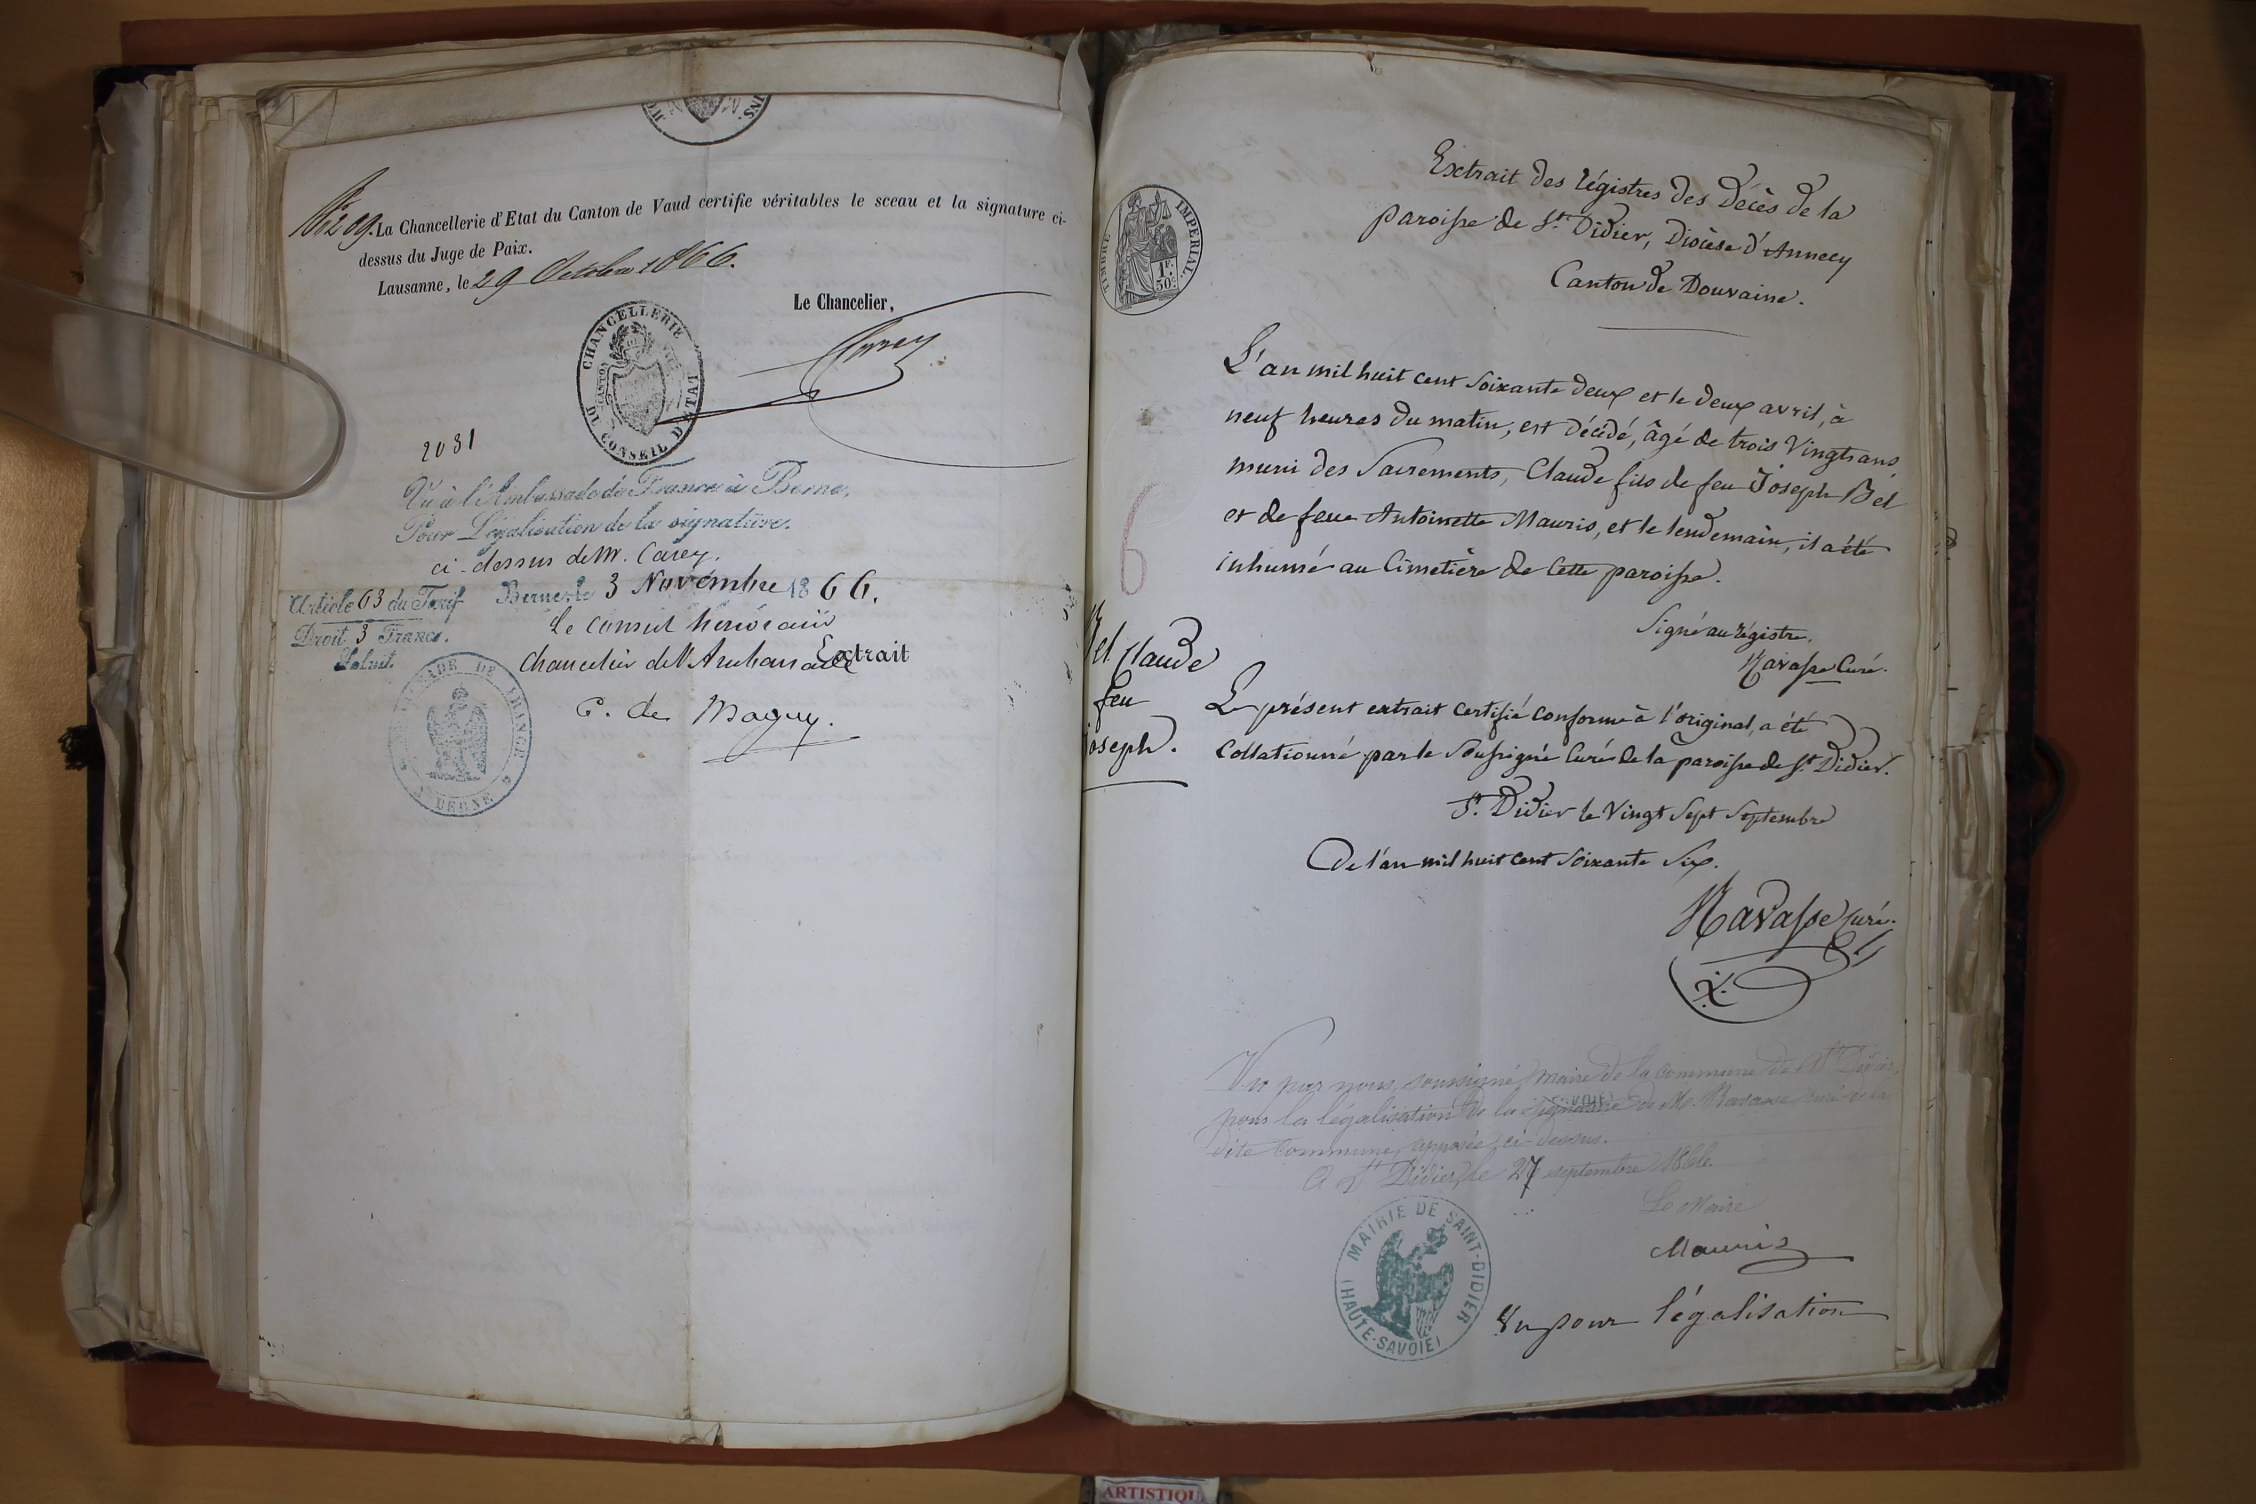 La Chancellerie d'Etat du Canton de Vaud certifie véritables le sceau et la signature ci-
dessus du Juge de Paix.
Lausanne, le 29 Octobre 1866.
Le Chancelier,
Carey
CHANCELLERIE
CANTON
DU CONSEIL D'ETAT
2081
Vu à l'Ambassade de France à Berne,
Pour Légalisation de la signature.
ci-dessus de M. Carey.
Berne, le 3 Novembre 1866.
Article 63 du Tarif
Droit 3 Francs.
le consul honoraire
Chancelier de l'Ambassade
Extrait
AMBASSADE DE FRANCE
A BERNE
6
Extrait des régistres des Décès de la
paroisse de St. Didier, Diocèse d'Annecy
Canton de Douvaine.
TIMBRE IMPERIAL.
1F.
50c
L'an mil huit cent soixante deux et le deux avril, à
neuf heures du matin, est décédé, âgé de trois vingts ans
muni des Sacrements, Claude fils de feu Joseph Bel
et de feue Antoinette Mauris, et le lendemain, il a été
inhumé au Cimetière de Cette paroisse.
Signé au régistre.
Ravasse Curé.
Bel Claude
feu
Joseph.
Le présent extrait certifié conforme à l'original, a été
Collationné par le Soussigné Curé de la paroisse de St. Didier.
St. Didier le vingt sept septembre
De l'an mil huit cent soixante six.
Ravasse Curé.
Vu par nous, soussigné, maire de la commune de St Didier,
pour la légalisation de la signature de M. Ravasse curé de la
dite commune, apposée ci-dessus.
A St Didier, le 27 septembre 1866.
Le Maire
Mauris
MAIRIE DE SAINT-DIDIER
(HAUTE-SAVOIE)
Vu pour légalisation
ARTISTIQU